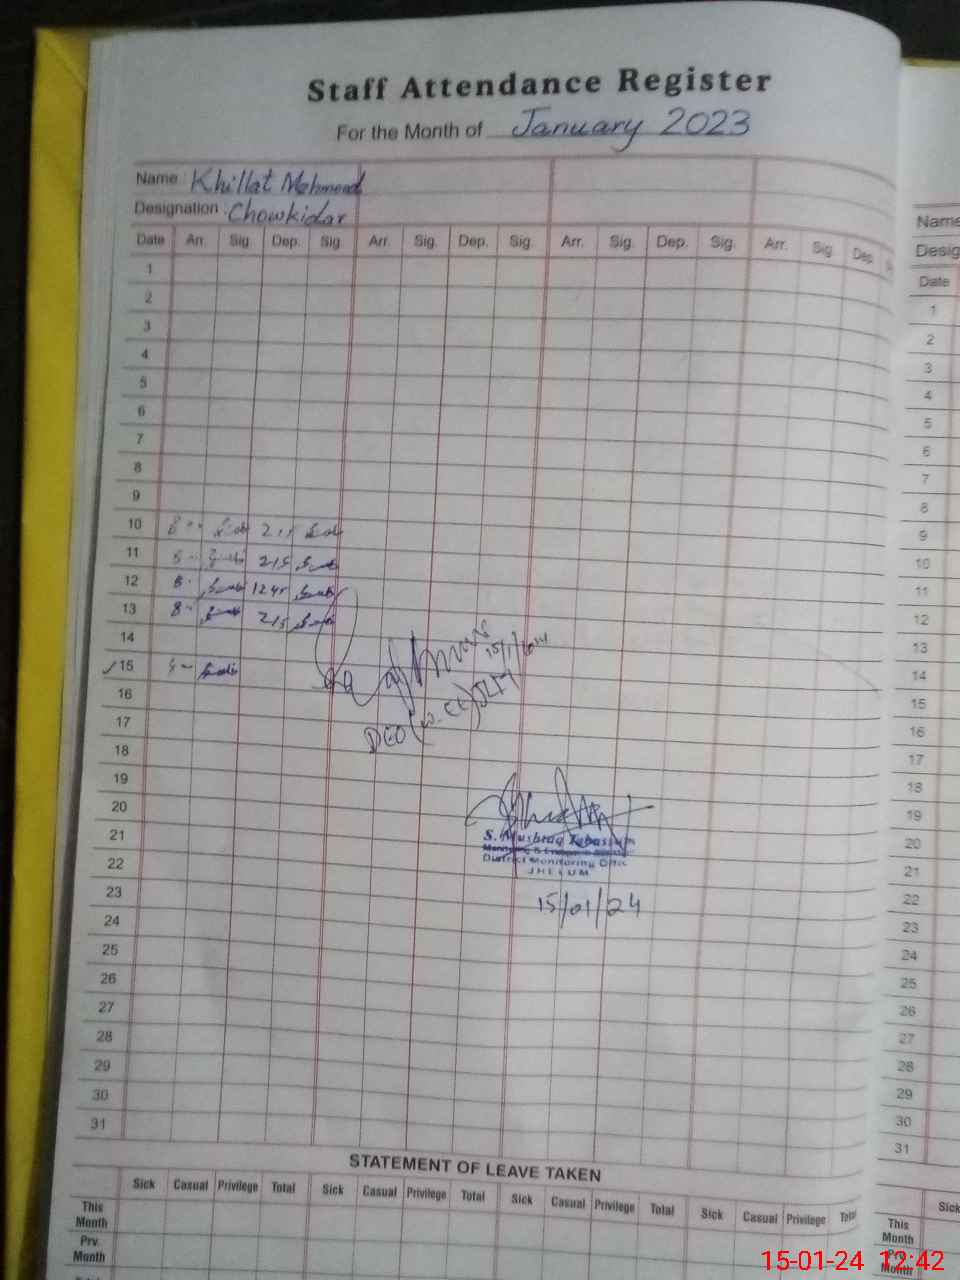 Staff Attendance Register
For the Month of January 2023
Name : Khillat Mehmood
Designation : Chowkidar
Date Arr. Sig. Dep. Sig. Arr. Sig. Dep. Sig. Arr. Sig. Dep. Sig. Arr. Sig. Dep.
1
2
3
4
5
6
7
8
9
10
11 215
12 1245
13 215
14
15
15/1/2024
16
17
DEO
18
19
20
21 S. Mushtaq Tabassum
22 District Monitoring
JHELUM
23 15/01/24
24
25
26
27
28
29
30
31
STATEMENT OF LEAVE TAKEN
Sick Casual Privilege Total Sick Casual Privilege Total Sick Casual Privilege Total Sick Casual Privilege Total
This Month
Prv. Month
Name
Desig
Date
1
2
3
4
5
6
7
8
9
10
11
12
13
14
15
16
17
18
19
20
21
22
23
24
25
26
27
28
29
30
31
Sick
This Month
Prv. Month
15-01-24 12:42